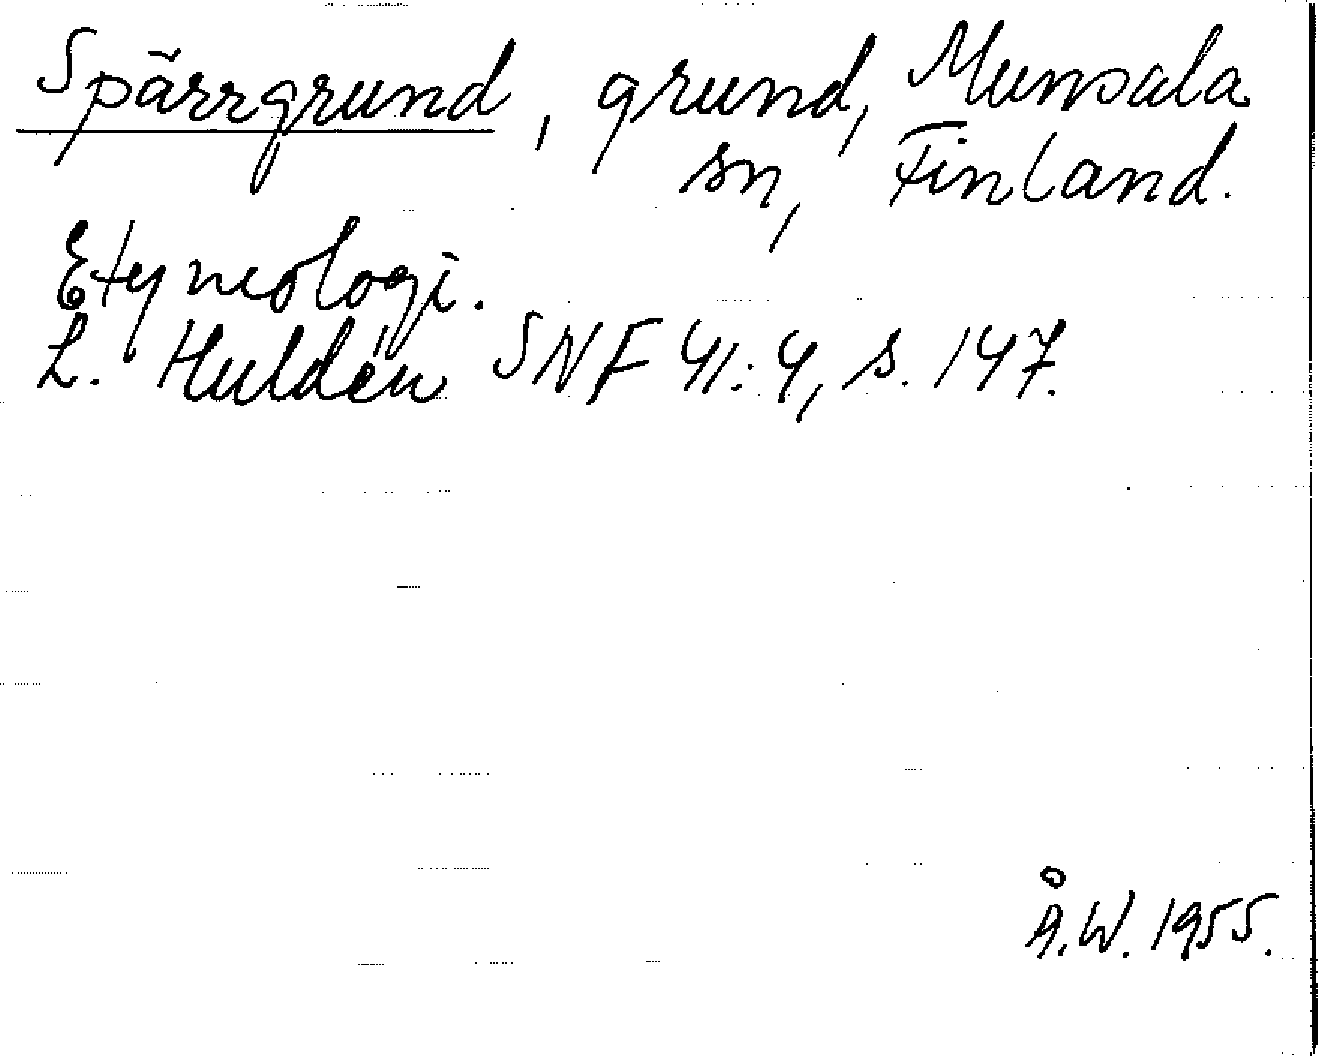 Spärrgrund, grund, Munsala
sn, Finland.
Etymologi.
L. Huldén SNF 41:4, s. 147.
Å.W. 1955.